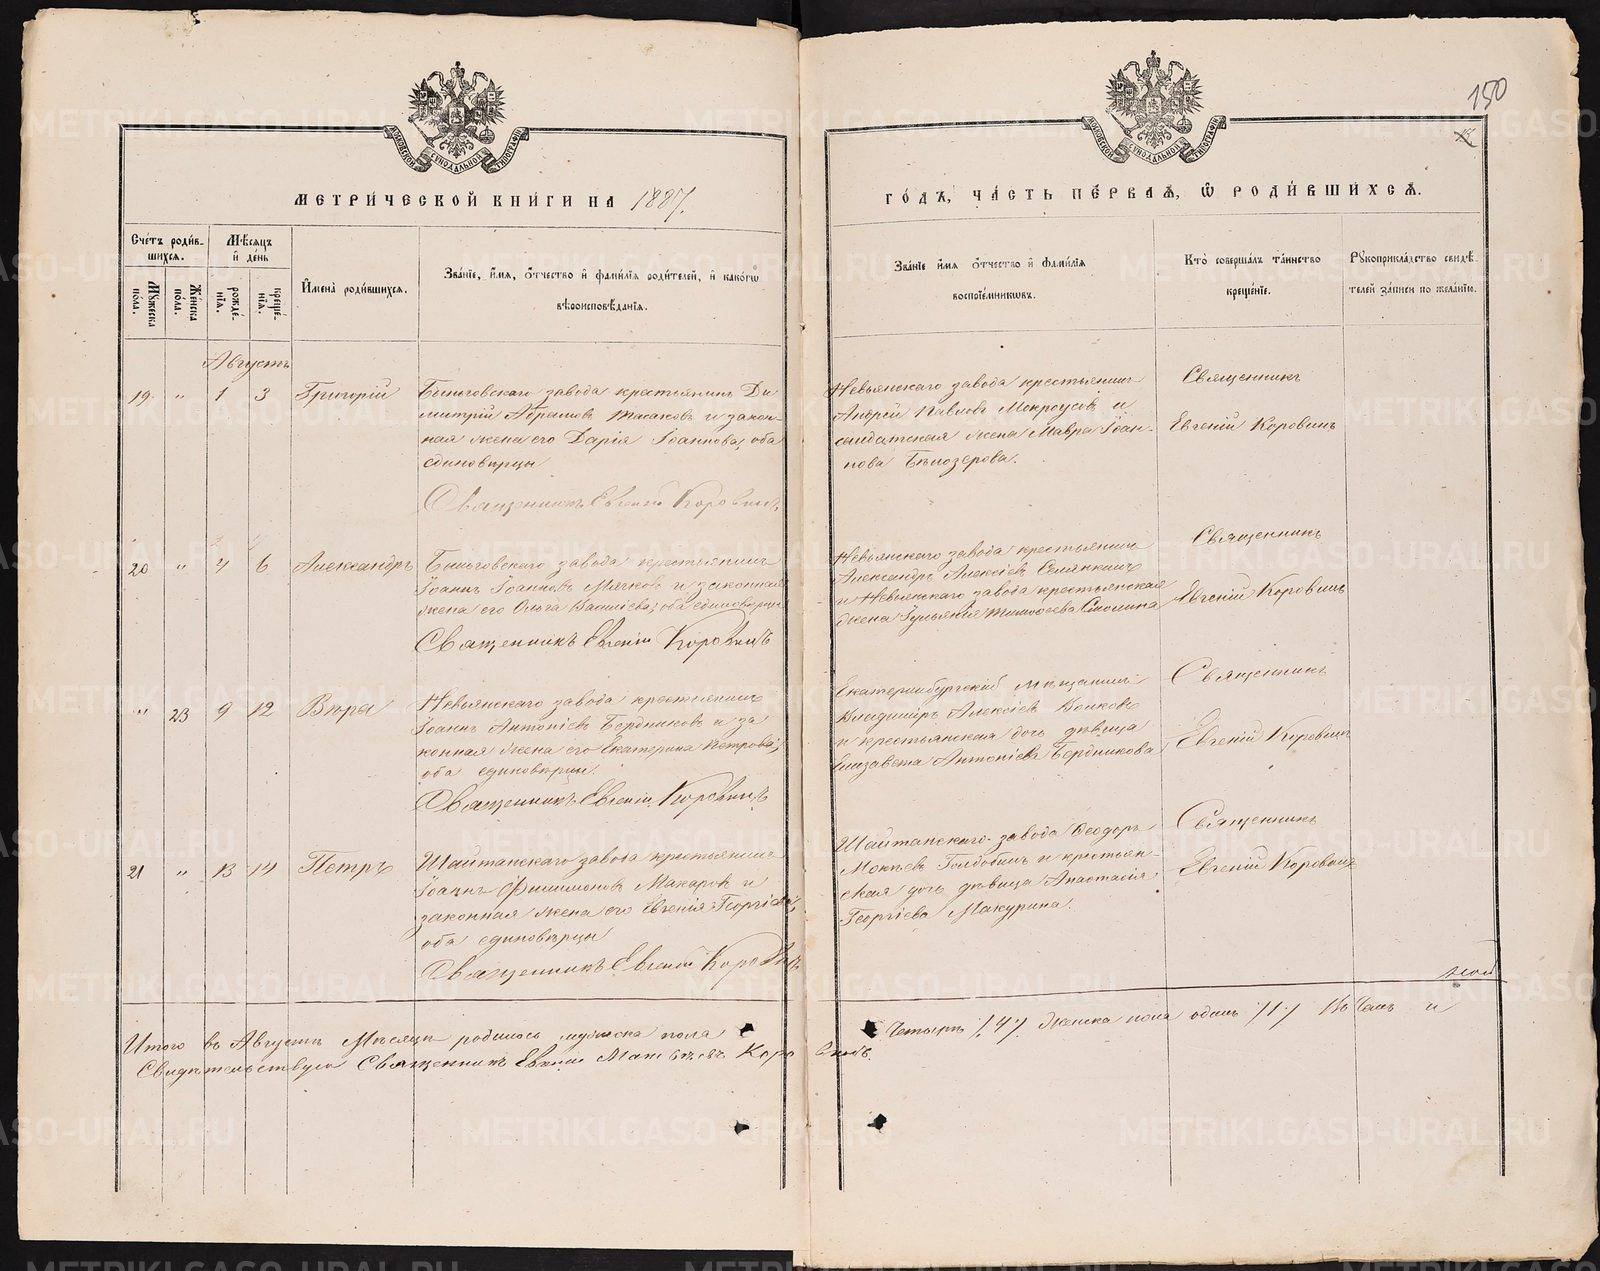 150
МЕТРИЧЕСКОЙ КНИГИ НА 1887.
ГОДЪ, ЧАСТЬ ПЕРВАЯ, Ѡ РОДИВШИХСЯ.
Счетъ родившихся.
Мужеска пола.
Женска пола.
Мѣсяцъ и день
рожденія.
крещенія.
Имена родившихся.
Званіе, имя, отчество и фамилія родителей, и какогѡ
вѣроисповѣданія.
Званіе имя отчество и фамилія
воспріемниковъ.
Кто совершалъ таинство
крещеніе.
Рукоприкладство свидѣтелей записи по желанію.
Августъ
19 " 1 3 Григорій
Быньговскаго завода крестьянинъ Ди
митрій Абрамовъ и закон-
ная жена его Дарія Іоаннова, оба
единовѣрцы
Священникъ Евгеній Коровинъ
Невьянскаго завода крестьянинъ
Андрей Павловъ Мокроусовъ и
солдатская жена Мавра Іоан-
нова Бѣлозерова.
Священникъ
Евгеній Коровинъ
20 " 4 6 Александръ
Быньговскаго завода крестьянинъ
Іоаннъ Іоанновъ Мячковъ и законная
жена его Ольга Васильева, оба единовѣрцы
Священникъ Евгеній Коровинъ
Невьянскаго завода крестьянинъ
Александръ Алексѣевъ Селянкинъ
и Невьянскаго завода крестьянская
жена Іульянія Тимофеева Смолина
Священникъ
Евгеній Коровинъ
" 23 9 12 Вѣра
Невьянскаго завода крестьянинъ
Іоаннъ Антоніевъ Бердниковъ и за
конная жена его Екатерина Петрова,
оба единовѣрцы.
Священникъ Евгеній Коровинъ
Екатеринбургскій мѣщанинъ
Владиміръ Алексіевъ
и крестьянская дочь дѣвица
Елизавета Антоніева Бердникова
Священникъ
Евгеній Коровинъ
21 " 13 14 Петръ
Шайтанскаго завода крестьянинъ
Іоаннъ Филимоновъ Макаровъ и
законная жена его Евгенія Георгіева,
оба единовѣрцы
Священникъ Евгеній Коровинъ
Шайтанскаго завода Ѳеодоръ
Мокѣевъ и крестьян-
ская дочь дѣвица Анастасія
Георгіева Макурина.
Священникъ
Евгеній Коровинъ
Итого въ Августѣ Мѣсяцѣ родилось мужеска пола четыре /4/ Женска пола одинъ /1/ Въ чемъ и
Свидѣтельствую Священникъ Евгеній Матвѣевъ Коровинъ.